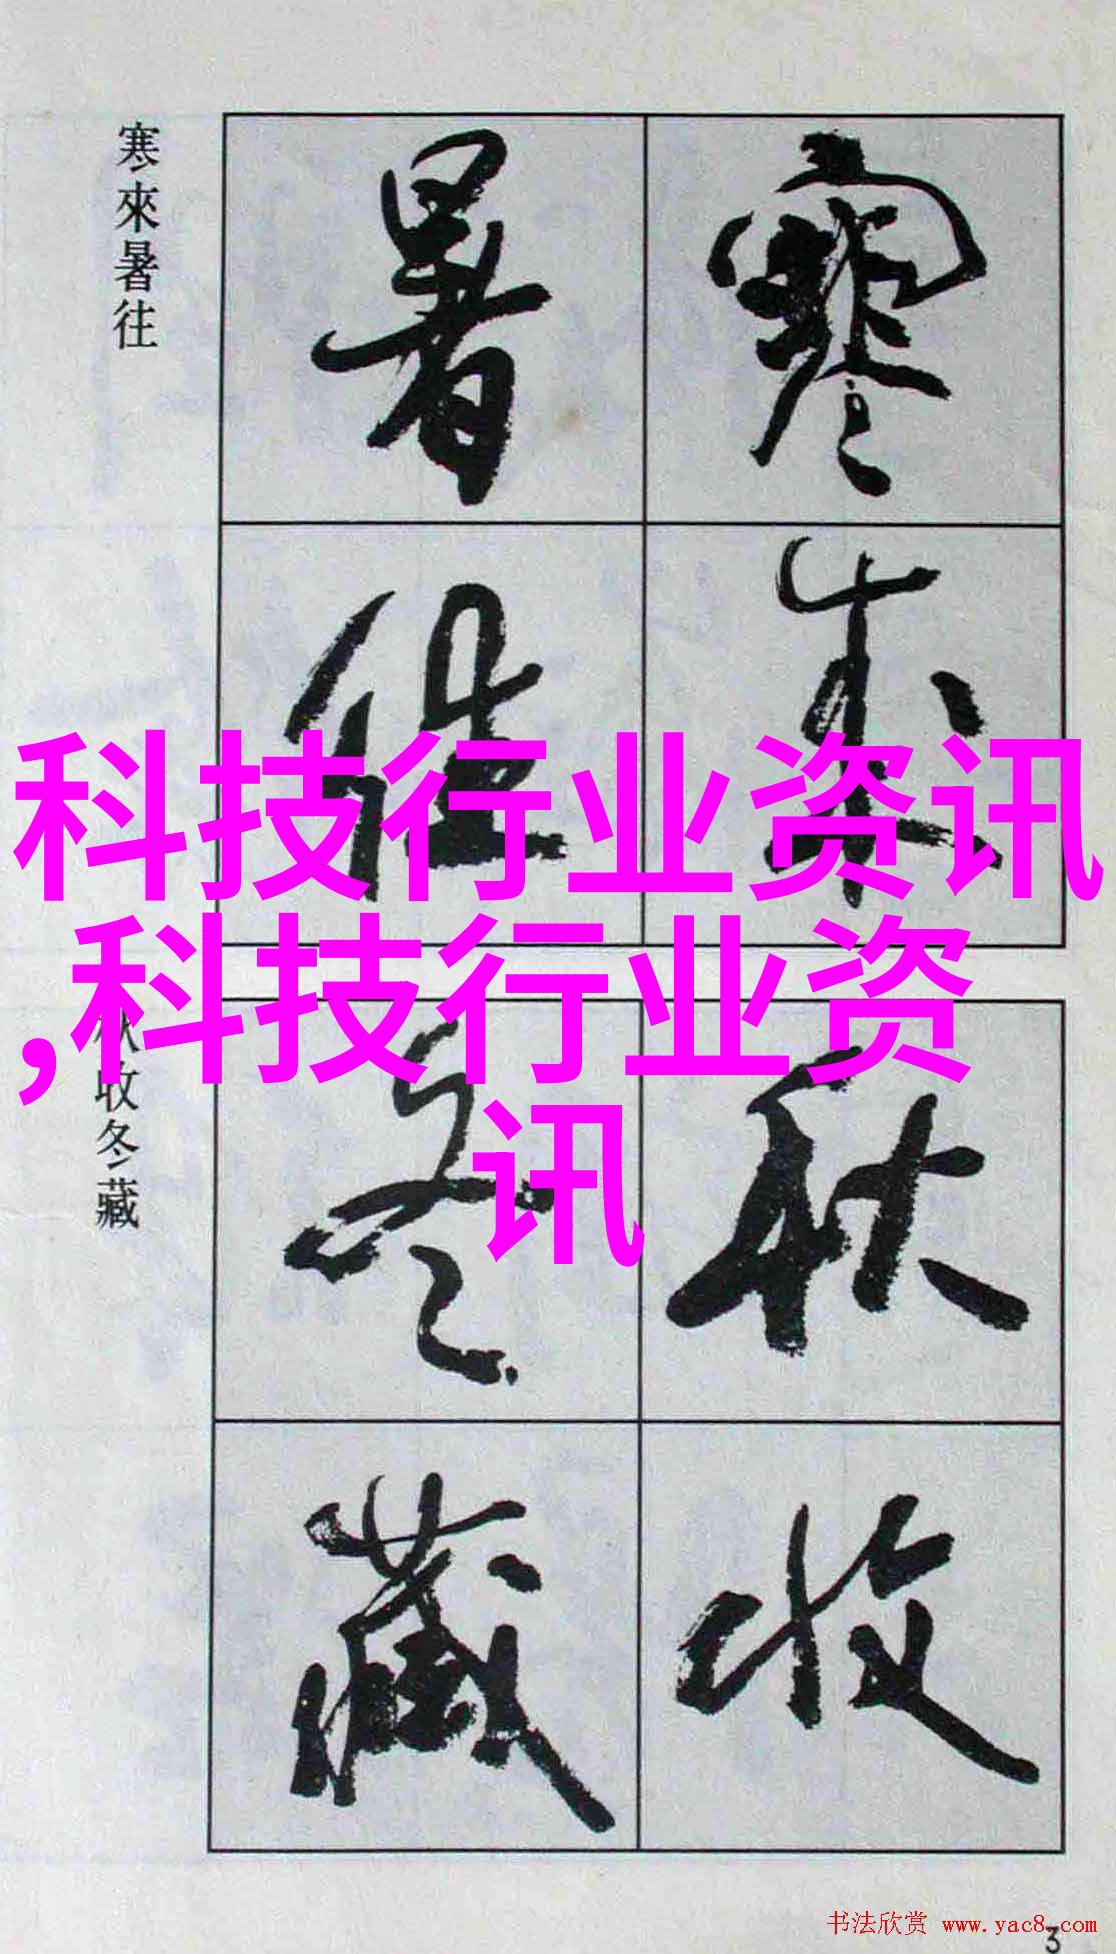 寒來暑往
寒來
暑往
科技行业资讯
,科技行业资
讯
收冬藏
秋收
冬藏
书法欣赏 www.yac8.com
3